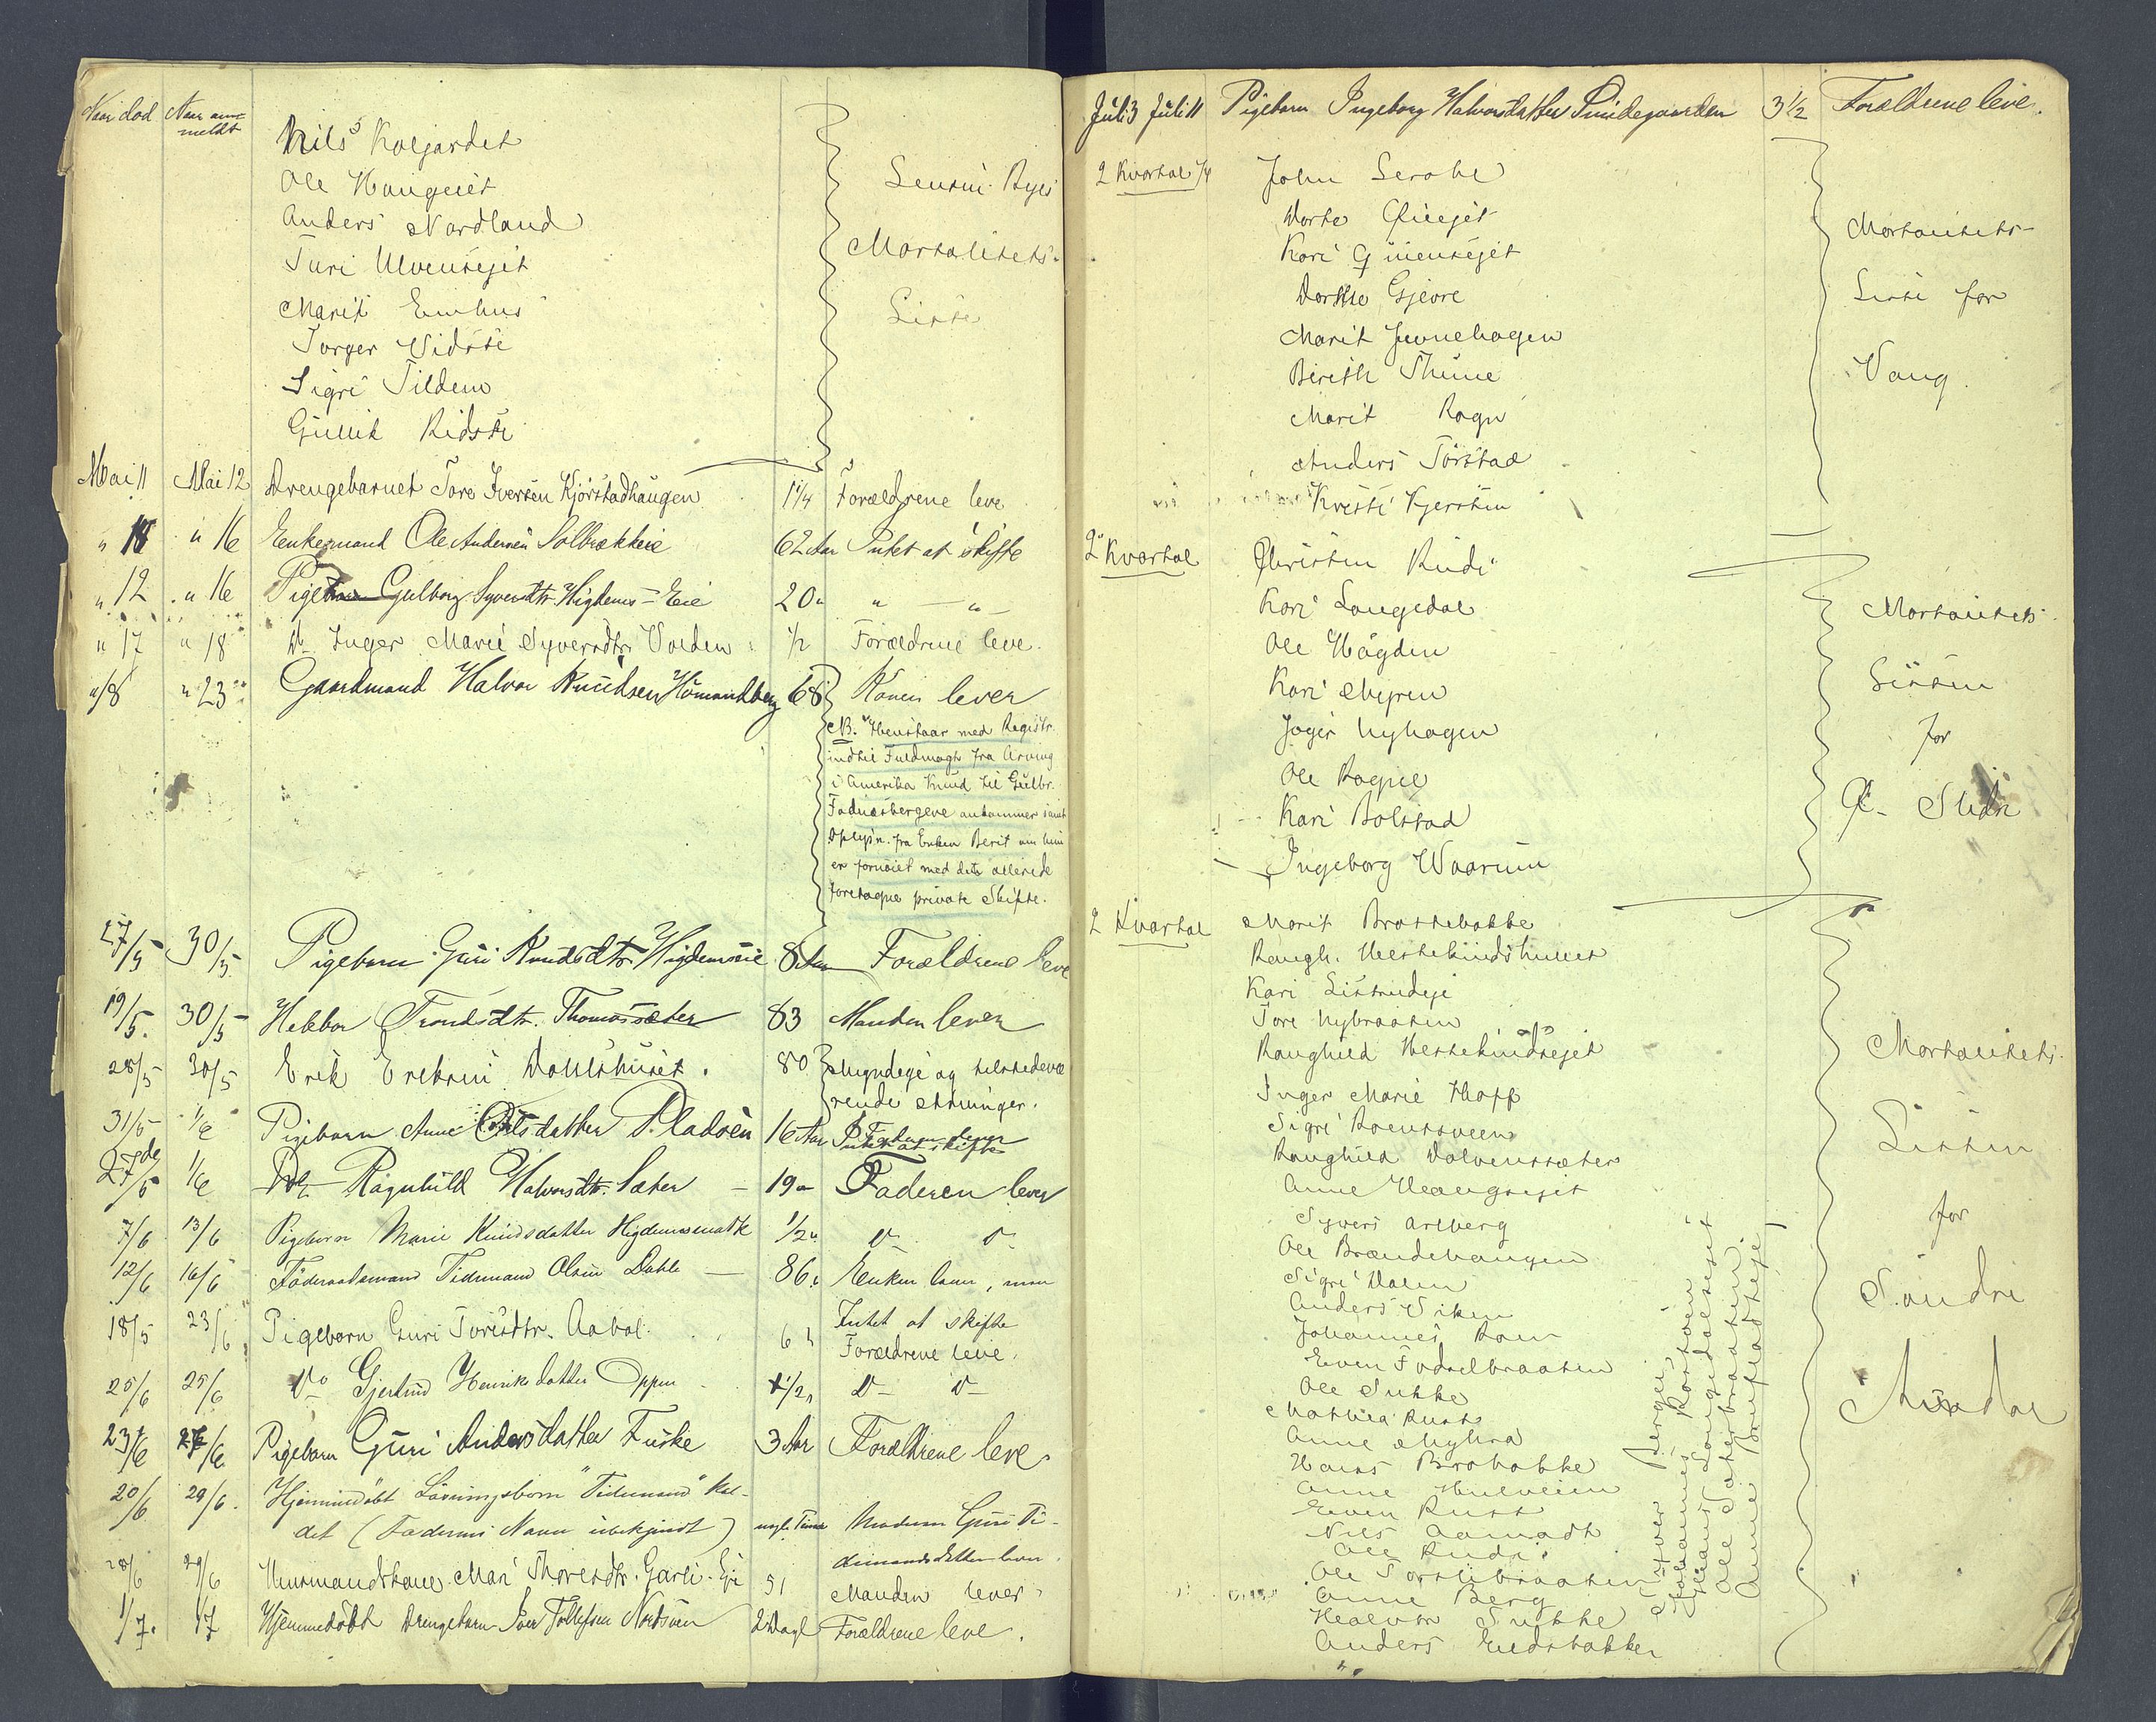 Naar död Naar anmeldt
Nils Kolgardet
Ole Haugeiet
Anders Nordland
Turi Ulvenseјet
Marit Emhus
Torger Vidste
Sigri Tildem
Gullik Ridste
Mortalitets-
Liste
Mai 11 Mai 12 Drengebarnet Tore Iversen Kjörstadhaugen 1 1/4 Forældrene leve
" 18 " 16 Enkemand Ole Andersen Solbrekkeie 62 Aar Intet at skifte
" 12 " 16 Pige Gulborg Syversdtr. Higdems-Eie 20 " " — " —
" 17 " 18 Do Inger Marie Syversdtr Volden 1/2 Forældrene leve.
"/8 " 23 Gaardmand Halvor Knudsen Hömandberg 68 Konen lever
NB. Henstaar med Registr.
indtil Fuldmagt fra Arving
i Amerika Knud til Gulbr.
Fodnesbergene ankommer samt
Oplysn. fra Enken Berit om hun
er fornöiet med det allerede
foretagne private Skifte.
27/5 30/5 Pigebarn Guri Knudsdtr. Higdemseie 8 Aar Forældrene leve
19/5. 30/5 Helebor Trondsdtr. Thomassæter 83 Manden lever
28/5 30/5 Erik Eriksen Dahlshuset. 80 Myndige og tilstedevæ
rende Arvinger.
31/5 1/6 Pigebarn Anne Olsdatter Pladsen 16 Aar Intet at skifte
27de/5 1/6 Do Ragnhild Halvorsdtr. Sæter — 19 " Faderen lever
7/6 13/6 Pigebarn Marie Knudsdatter Higdemsmark 1/2 " D— D—
12/6 16/6 Föderaadsmand Tidemand Olsen Dahle — 86 " Enken lever, men
Intet at skifte
18/5 23/6 Pigebarn Guri Toresdtr. Aabol. 6 " Forældrene leve.
25/6 25/6 Do Gjertrud Henriksdatter Oppen 1/2 " D— D—
23/6 27/6 Pigebarn Guri Andersdatter Fuske 3 Aar Forældrene leve
20/6 29/6. Hjemmedöbt Lösningsbarn "Tidemand" kal-
det (Faderens Navn ubekjendt) nogle Timer Moderen Guri Ti-
demandsdatter lever.
28/6 29/6 Husmandskone Mari Thoresdtr. Garli-Eje 51 Manden lever
1/7. 1/7 Hjemmedöbt Drengebarn Iver Tollefsen Nordsveen 2 Dage Forældrene leve.
Juli 3 Juli 11 Pigebarn Ingeborg Halvorsdatter Smidegaarden 3 1/2 Forældrene leve.
2 Kvartal
John Lerohl
Dorte
Kari
Dorthe Gjevre
Marit
Berith Thune
Marit Rogn
Anders Torstad
Kristi Kjersten
Mortalitets-
Liste for
Vang.
2 Kvartal
Christen Rudi
Kari Langedal
Ole Högden
Kari Myren
Nyhagen
Ole Rogne
Kari Bolstad
Ingeborg Waarum
Mortalitets-
Listen
for
Ö. Slidre
2 Kvartal
Marit Brattebakke
Rangh. Hestekindshullet
Kari Listrudeje
Tore Nybraaten
Ranghild Hestekindsejet
Inger Marie Hoff
Sigri Roensveen
Ranghild Dalvenssæter
Anne Haugsejet
Syver Arlberg
Ole Brændehaugen
Sigri Dalen
Anders Viken
Johannes Roen
Even Fodselbraaten
Ole Sukke
Mathea Rust
Anne Myhra
Hans Brobakke
Anne Hulveien
Even Rust
Nils
Ole Rudi
Ole
Anne Berg
Halvor Sukke
Anders Lidsbakken
Johannes
Ole Sæterbraaten
Anne
Mortalitets-
Listen
for
Söndre
Aurdal